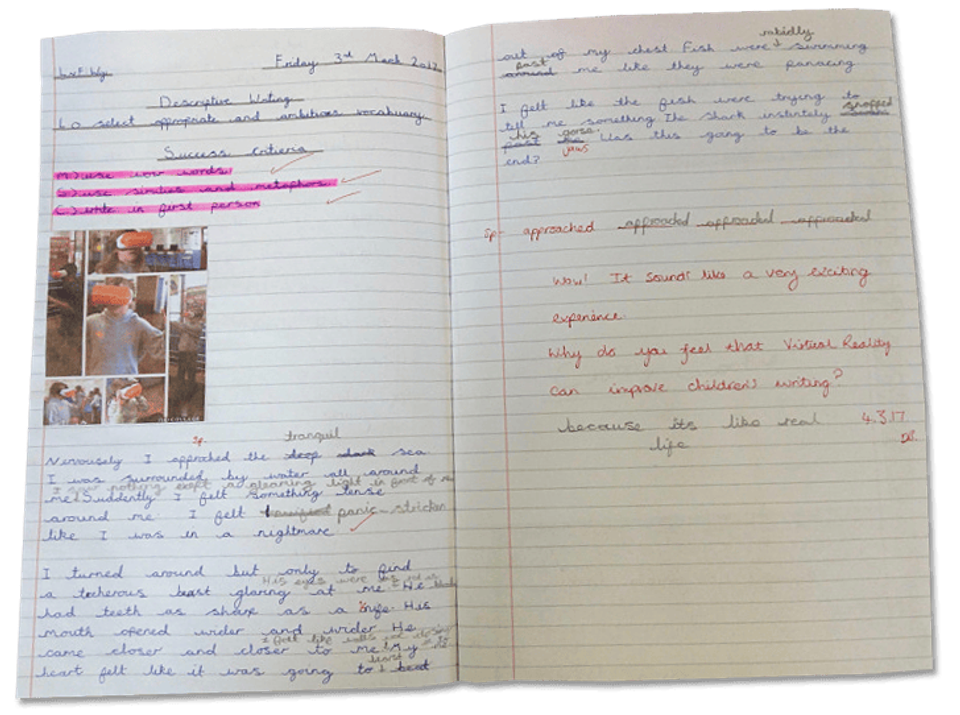 Friday 3rd March 2017
Descriptive Writing
L.O select appropriate and ambitious vocabulary.
Success Criteria
M) use wow words
S) use similies and metaphors.
C) write in first person
sp. tranquil
Nervously I approched the deep dark sea
I was surrounded by water all around
I saw nothing exept a gleaming light in front of me
me. Suddenly I felt something tense
around me. I felt panic-stricken
like I was in a nightmare.
I turned around but only to find
His eyes were as red as
a techerous beast glaring at me. He blood
had teeth as sharp as a knife. His
mouth opened wider and wider. He
I felt like walls were closing
came closer and closer to me. My
burst
heart felt like it was going to beat
rabidly
out of my chest Fish were swimming
past
around me like they were panacing
I felt like the fish were trying to
tell me something. The shark instintely snapped
his
past me Was this going to be the
jaws
end?
sp- approached approached approached approached
Wow! It sounds like a very exciting
experience.
Why do you feel that Virtual Reality
can improve children's writing?
because its like real 4.3.17
life